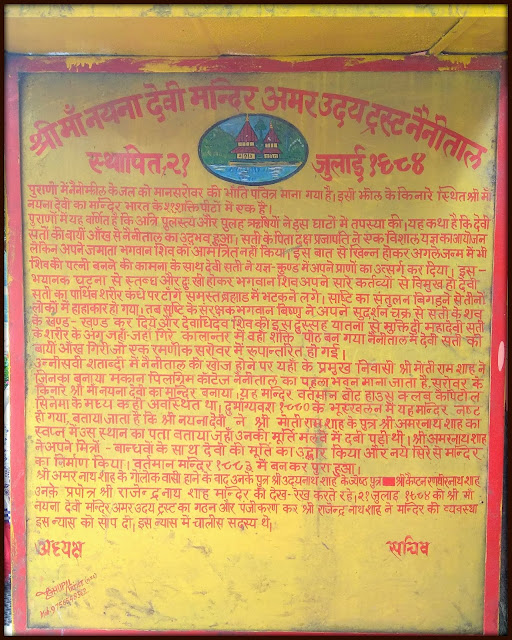 श्री माँ नयना देवी मन्दिर अमर उदय ट्रस्ट नैनीताल
स्थापित २१ जुलाई १९८४
पुराणों में नैनीझील के जल को मानसरोवर की भाँति पवित्र माना गया है। इसी झील के किनारे स्थित श्री माँ
नयना देवी का मन्दिर भारत के शक्ति पीठों में एक है।
पुराणों में यह वर्णित है कि अत्रि पुलस्त्य और पुलह ऋषियों ने इस घाटी में तपस्या की। यह कथा है कि देवी
सती की बायीं आँख से नैनीताल का उद्भव हुआ। सती के पिता दक्ष प्रजापति ने एक विशाल यज्ञ का आयोजन
लेकिन अपने जमाता भगवान शिव को आमन्त्रित नहीं किया। इस बात से खिन्न होकर अगले जन्म में भी
शिव की पत्नी बनने की कामना के साथ देवी सती ने यज्ञ-कुण्ड में अपने प्राणों का उत्सर्ग कर दिया। इस-
भयानक घटना से स्तब्ध और दुःखी होकर भगवान शिव अपने सारे कर्तव्यों से विमुख हो देवी
सती का पार्थिव शरीर कंधे पर टाँगे समस्त ब्रह्माड में भटकने लगे। सृष्टि का संतुलन बिगड़ने से तीनों
लोकों में हाहाकार हो गया। तब सृष्टि के संरक्षक भगवान विष्णु ने अपने सुदर्शन चक्र से सती के शव
के खण्ड-खण्ड कर दिये और देवाधिदेव शिव को इस दुस्सह यातना से मुक्ति दी महादेवी सती
के शरीर के अंग जहाँ-जहाँ गिरे कालान्तर में वही शक्ति पीठ बन गया नैनीताल में देवी सती की
बायीं आँख गिरी जो एक रमणीक सरोवर में रूपान्तरित हो गई।
उन्नीसवीं शताब्दी में नैनीताल की खोज होने पर यहाँ के प्रमुख निवासी श्री मोती राम शाह ने
जिनका बनाया मकान पिलग्रिम कॉटेज नैनीताल का पहला भवन माना जाता है, सरोवर के
किनारे श्री माँ नयना देवी का मन्दिर बनाया। यह मन्दिर वर्तमान बोट हाउस क्लब कैपिटॉल
सिनेमा के मध्य कहीं अवस्थित था। दुर्भाग्यवश १८८० के भूस्खलन में यह मन्दिर नष्ट
हो गया, बताया जाता है कि श्री नयना देवी ने श्री मोती राम शाह के पुत्र श्री अमरनाथ शाह को
स्वप्न में उस स्थान का पता बताया जहाँ उनकी मूर्ति मलवे में दबी पड़ी थी। श्री अमरनाथ शाह
ने अपने मित्रों-बान्धवों के साथ देवी की मूर्ति का उद्धार किया और नये सिरे से मन्दिर
का निर्माण किया। वर्तमान मन्दिर १८८३ में बनकर पूरा हुआ।
श्री अमर नाथ शाह के गोलोक वासी होने के बाद उनके पुत्र श्री उदयनाथ शाह के ज्येष्ठ पुत्र श्री कैप्टन रणधीर नाथ शाह
उनके प्रपौत्र श्री राजेन्द्र नाथ शाह मन्दिर की देख-रेख करते रहे। २१ जुलाई १९८४ को श्री माँ
नयना देवी मन्दिर अमर उदय ट्रस्ट का गठन और पंजीकरण कर श्री राजेन्द्र नाथ शाह ने मन्दिर की व्यवस्था
इस न्यास को सौंप दी। इस न्यास में चालीस सदस्य थे।
अध्यक्ष
सचिव